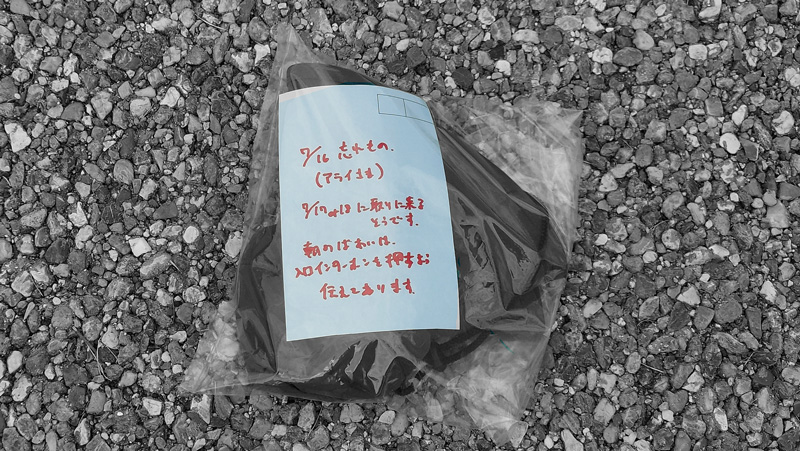 7/16 忘れもの.
(アライさま)
7/17or18 に取りに来る
そうです.
朝のばあいは.
入口インターホンを押すよう
伝えてあります.